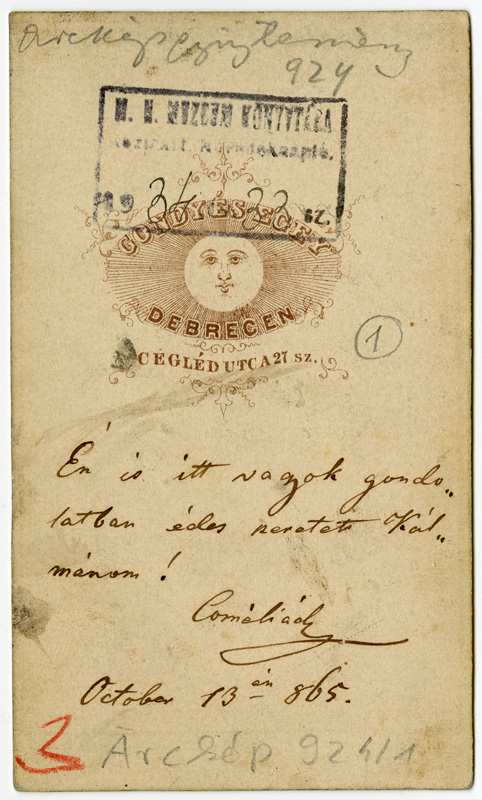 Arcképgyűjtemény
924
M. N. MUZEUM KÖNYVTÁRA
Kézirati Növedéknapló.
19 34 23 SZ.
GONDY ÉS EGEY
DEBRECEN
1
CEGLÉD UTCA 27 SZ.
Én is itt vagok gondo„
latban édes szeretett Kál„
mánom!
Cornéliád
October 13 án 865.
3 Arckép 924/1